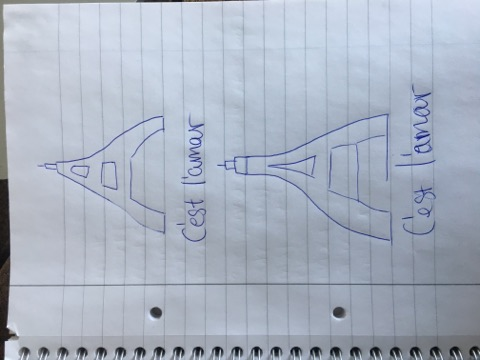 C'est l'amar
C'est l'amar